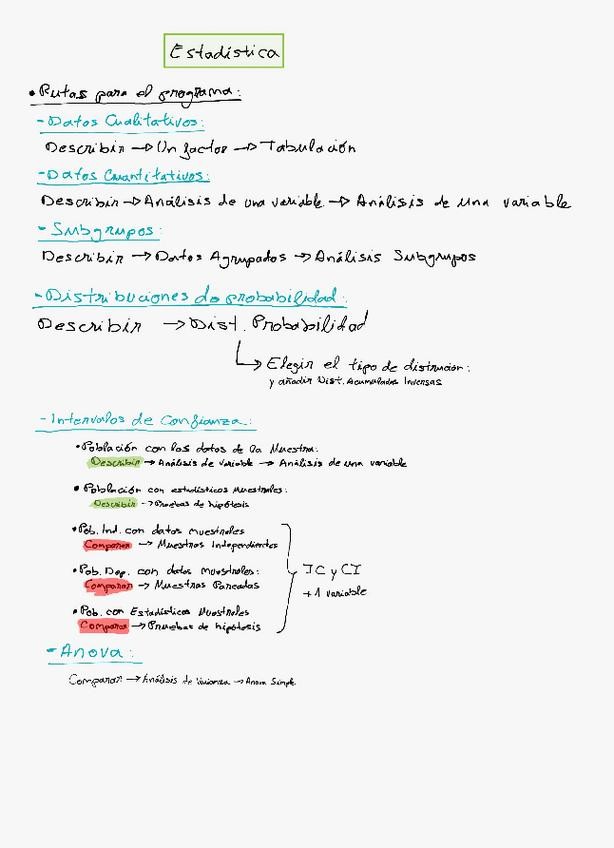 Estadística
• Rutas para el programa:
- Datos Cualitativos:
Describir → Un factor → Tabulación
- Datos Cuantitativos:
Describir → Análisis de una variable → Análisis de una variable
- Subgrupos:
Describir → Datos Agrupados → Análisis Subgrupos
- Distribuciones de probabilidad:
Describir → Dist. Probabilidad
↳ Elegir el tipo de distrución:
y añadir Dist. Acumuladas Inversas
- Intervalos de Confianza:
• Población con los datos de la Muestra:
Describir → Análisis de variable → Análisis de una variable
• Población con estadísticos muestrales:
Describir → Pruebas de hipótesis
• Pob. Ind. con datos muestrales
Comparar → Muestras Independientes
• Pob. Dep. con datos muestrales:
Comparar → Muestras Pareadas
IC y CI
+1 variable
• Pob. con Estadísticos Muestrales
Comparar → Pruebas de hipótesis
- Anova:
Comparar → Análisis de Varianza → Anova Simple